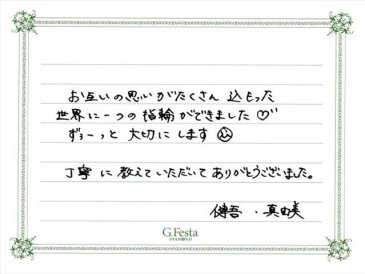 お互いの思いがたくさん 込もった
世界に一つの指輪ができました♡
ずぅーっと 大切にします☺
丁寧に教えていただいてありがとうございました。
健吾 、真由美
G.Festa
DIAMOND